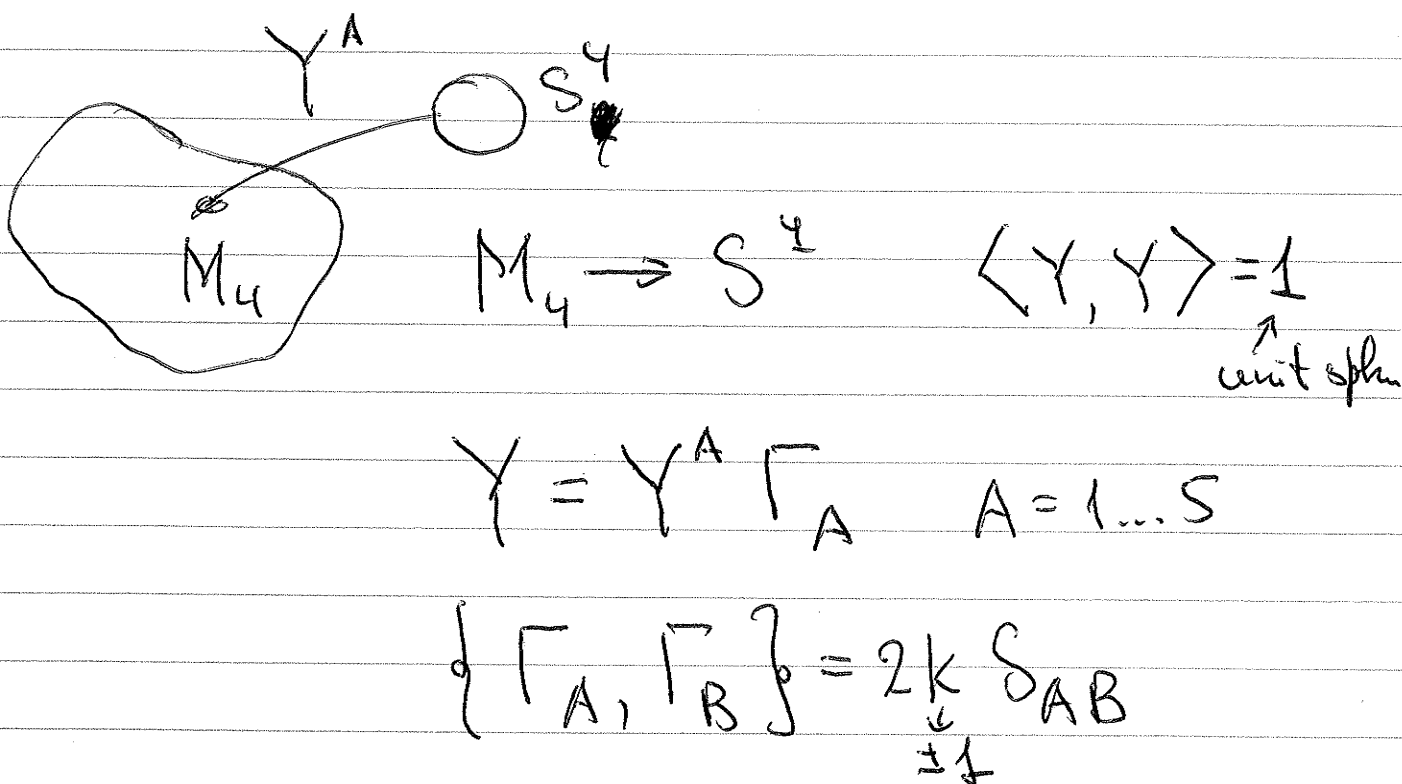 Y^A
S^4
M_4 M_4 → S^4 ⟨Y, Y⟩ = 1
↑
unit
Y = Y^A Γ_A A = 1 .... 5
{Γ_A, Γ_B} = 2k δ_AB
↓
±1